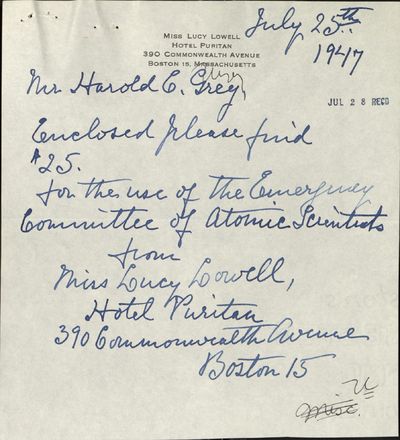 July 25th.
1947
MISS LUCY LOWELL
HOTEL PURITAN
390 COMMONWEALTH AVENUE
BOSTON 15, MASSACHUSETTS
Mr Harold C. Grey
JUL 28 REC'D
Enclosed please find
$25.
for the use of the Emergency
Committee of Atomic Scientists
from
Miss Lucy Lowell,
Hotel Puritan
390 Commonwealth Avenue
Boston 15
U
Misc.